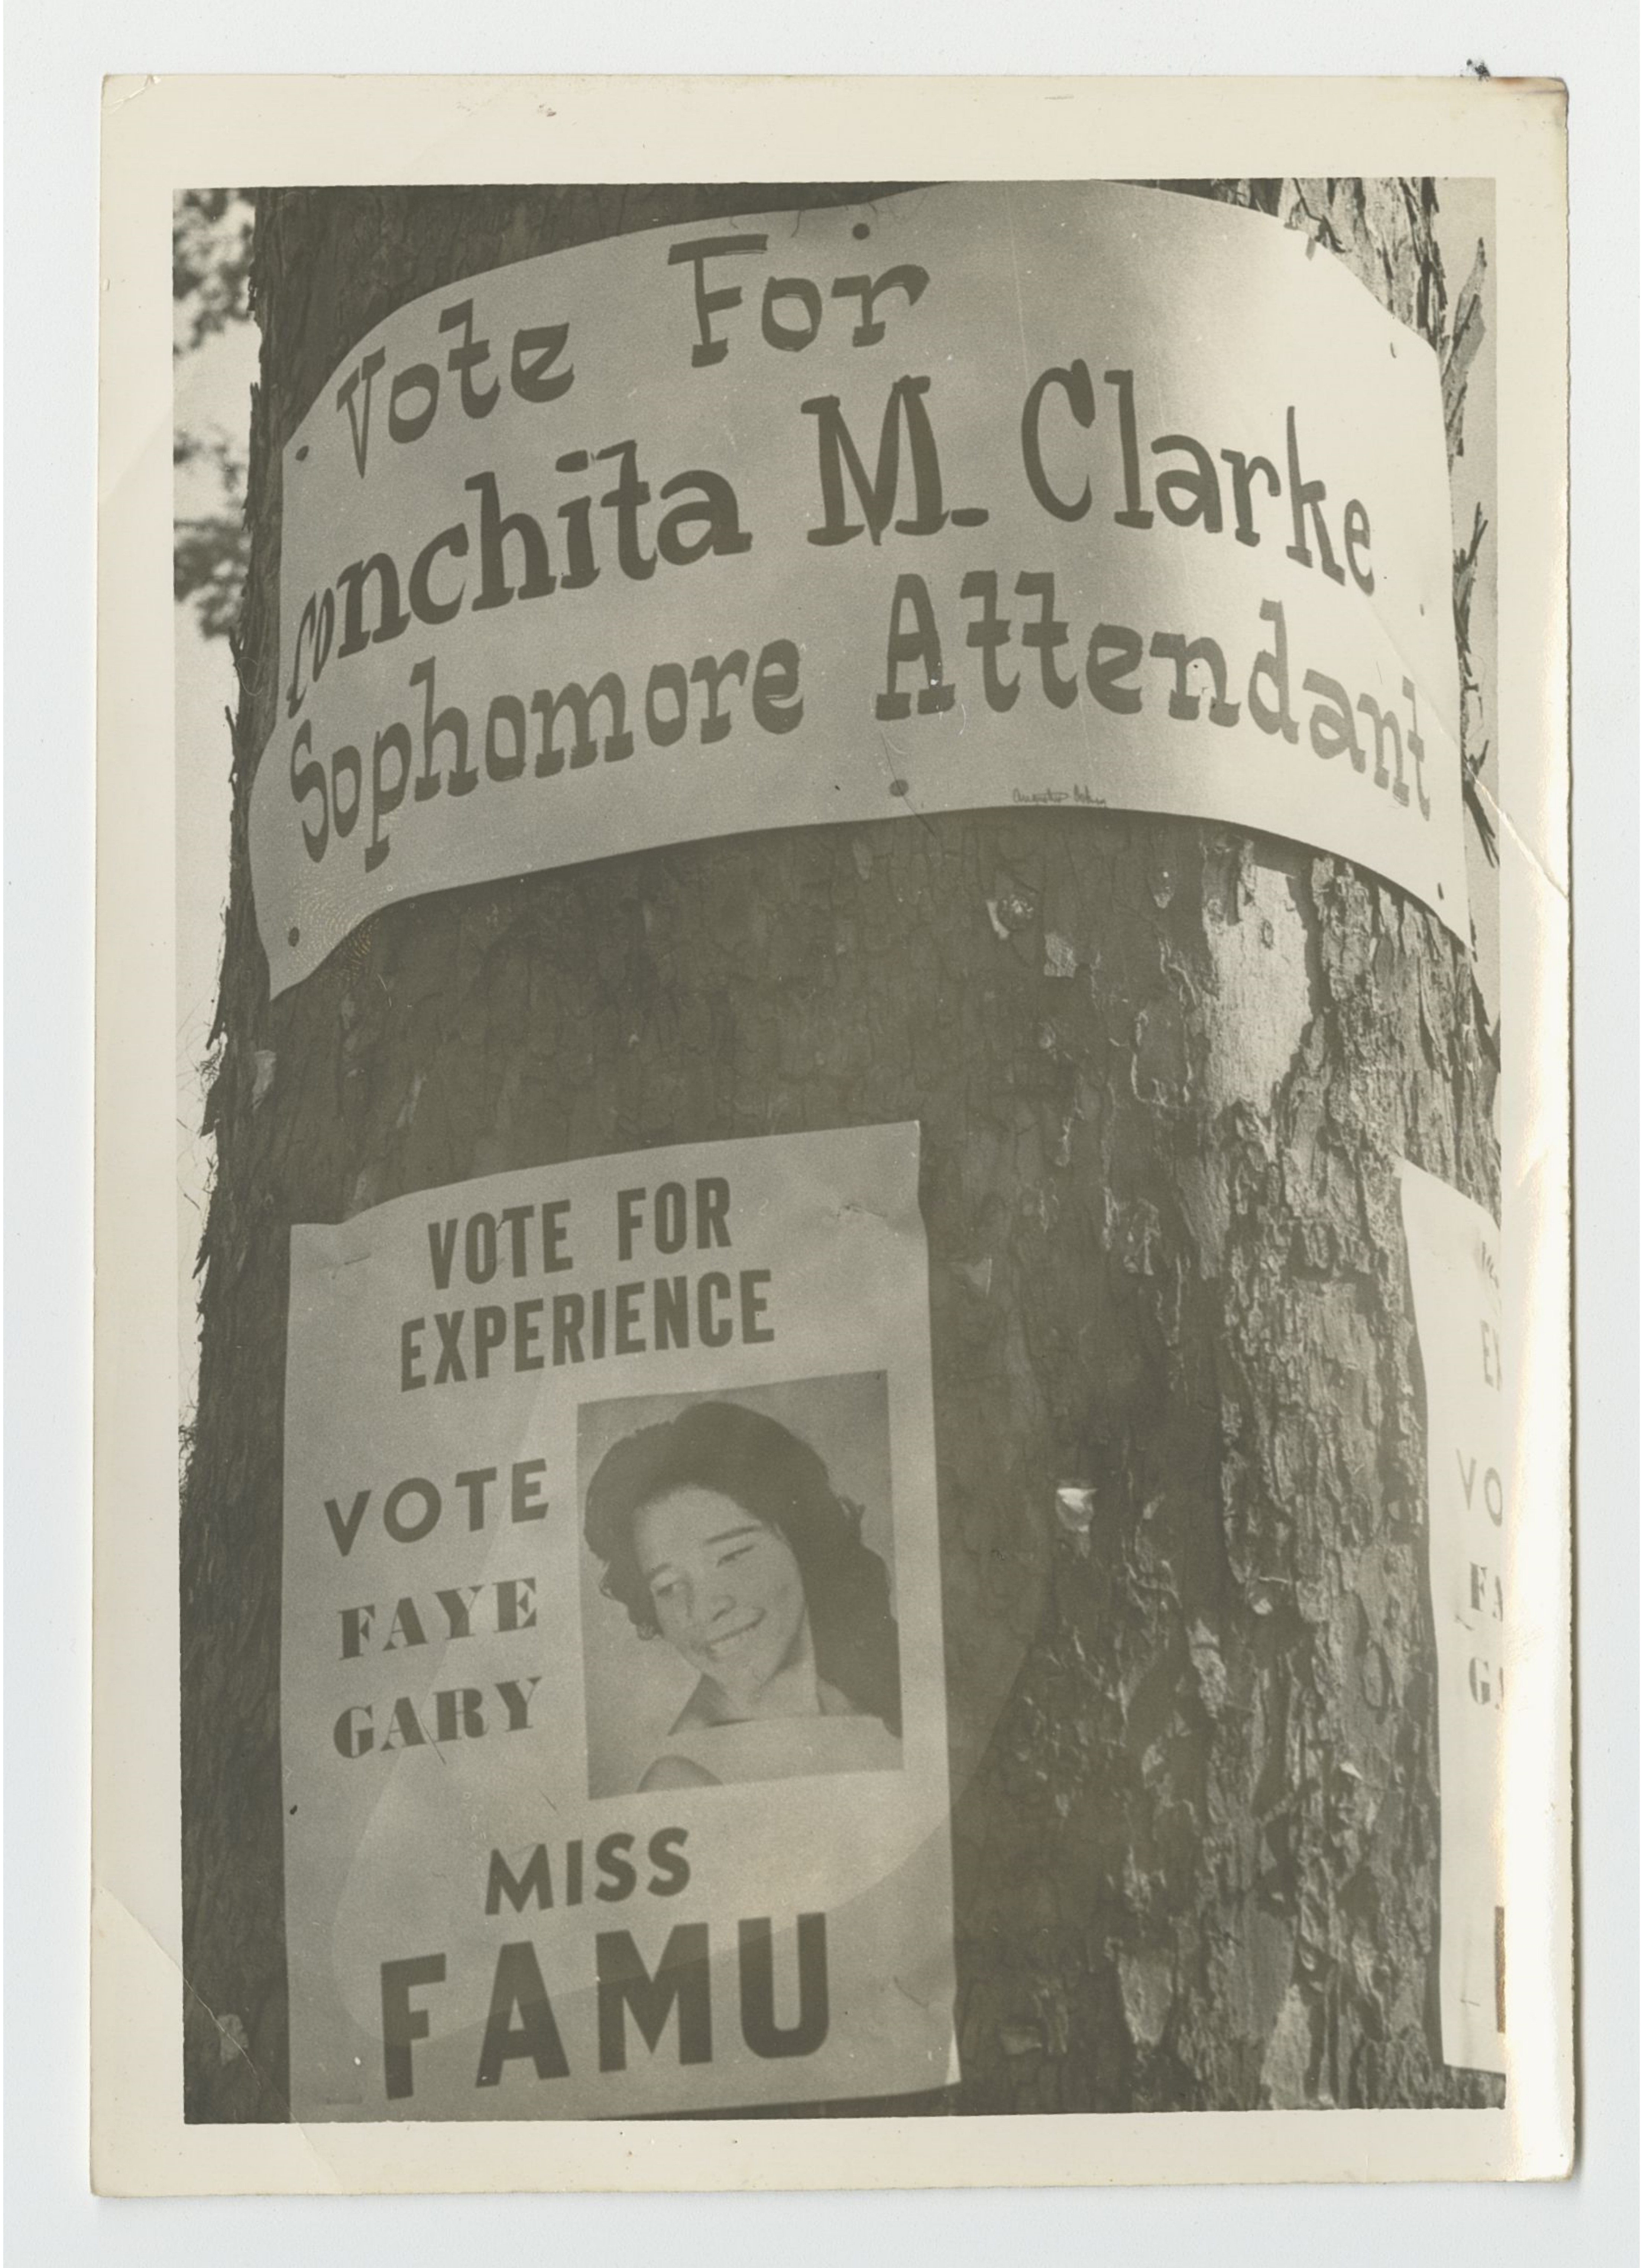 Vote For
Conchita M. Clarke
Sophomore Attendant
VOTE FOR
EXPERIENCE
VOTE
FAYE
GARY
MISS
FAMU
VO
FA
GA